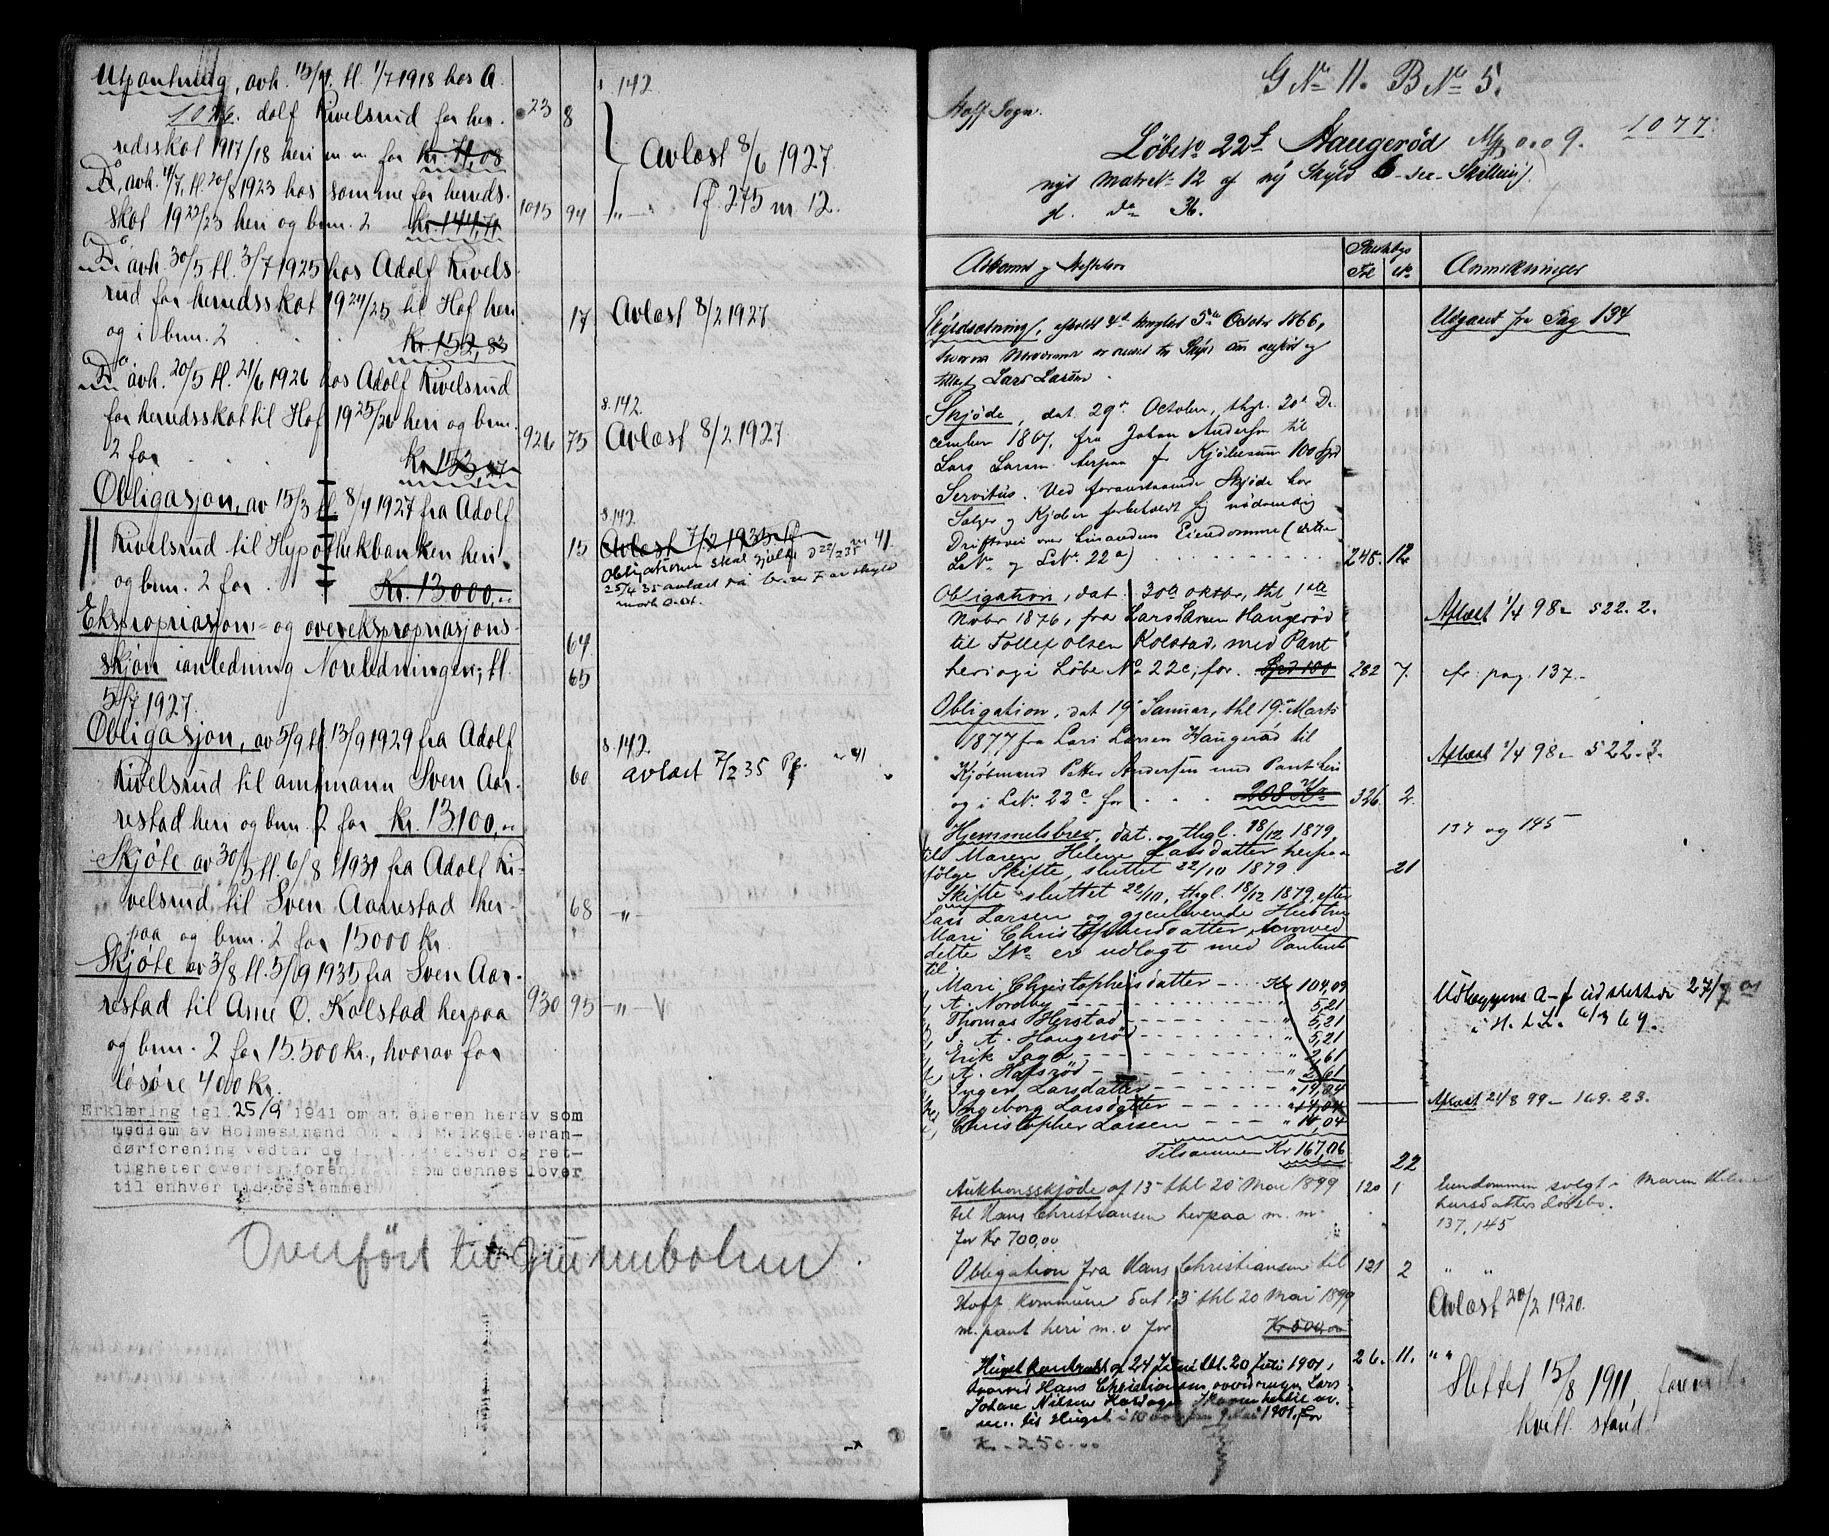 Utpantning, avh. 15/4 tl. 1/7 1918 hos A
1076. dolf Kivelsrud for her-
redsskat 1917/18 heri m. m. for Kr. 71,08
Do, avh. 4/7, tl. 20/8 1923 hos samme for herreds-
skat 1922/23 heri og bnr. 2 Kr. 144,71
Do avh. 30/5 tl. 3/7 1925 hos Adolf Kivels-
rud for herredsskat 1924/25 til Hof heri
og i bnr. 2 Kr. 152,83
Do avh. 20/5 tl. 21/6 1926 hos Adolf Kivelsrud
for herredsskat til Hof 1925/26 heri og bnr.
2 for Kr. 153,47
Obligasjon, av 15/3 tl. 8/4 1927 fra Adolf
Kivelsrud til Hypothekbanken heri
og bnr. 2 for Kr. 13000,-
Ekspropriasjon- og overekspropriasjons-
skjøn i anledning Noreledningen, tl.
5/7 1927.
Obligasjon, av 5/9 tl. 13/9 1929 fra Adolf
Kivelsrud til amtmann Sven Aar-
restad heri og bnr. 2 for Kr. 13.100,-
Skjøte av 30/5 tl. 6/8 1931 fra Adolf Ki-
velsrud til Sven Aarrestad her-
paa og bnr. 2 for 15000 Kr.
Skjøte av 3/8 tl. 5/9 1935 fra Sven Aar-
restad til Arne O. Kolstad herpaa
og bnr. 2 for 15.500 Kr., hvorav for
løsøre 400 Kr.
Erklæring tgl. 25/9 1941 om at eieren herav som
medlem av Holmestrand og Melkeleveran-
dørforening vedtar de og ret-
tigheter overfor foreningen som dennes lover
til enhver tid bestemmer
Overført til Grunnbolen
23 8
1015 94
17
926 75
15
64
65
60
68
930 95
142.
Avlæst 8/6 1927.
"— Pf. 275 m 12.
Avlæst 8/2 1927
8.142.
Avlæst 8/2 1927
8.142.
Avlæst 7/2 1935
Obligationen skal gjelde
25/4 35 avlæst på b.nr. 7 av skyld
mark
8.142.
avlæst 7/2 35 Pf. nr 41
-"-
-"-
G No 11. B No 5.
Hoff Sogn.
1077.
Løbe No 22f Haugerød
nyt Matr No 12 af ny Skyld 6
Adkomst og Hæftelser
Pantebogs
Fol No
Anmerkninger
Skyldsætning, afholdt 4de thinglæst 5te October 1866,
tillagt Lars Larsen.
Udgaaet fra Pag 134
Skjøde, dat. 29de October, thgl. 20de De-
cember 1867, fra Johan Andersen til
Lars Larsen herpaa for Kjøbesum 100 Spd
Servitus. Ved foranstaaende Skjøde har
Sælger og Kjøber forbeholdt sig nødvendig
Driftsvei over hinandens Eiendomme (dette
LNo og LNo 22a) 245. 12.
Obligation, dat. 30te oktbr, thl 1ste
Novbr 1876, fra Lars Larsen Haugerød
til Tollef Olsen Kolstad, med Pant
heri og i Løbe No 22c, for Spd 100 202 7.
Aflæst 1/4 98 - 522. 2.
cfr. pag. 137.-
Obligation, dat 19de Januar, thl 19de Marts
1877 fra Lars Larsen Haugerød til
Kjøbmand Petter Andersen med Pant heri
og i LNo 22c for 208 Kr 326 2.
Aflæst 1/4 98 - 522. 3.
137 og 145
Hjemmelsbrev, dat. og thgl. 18/12 1879,
til Maren Helene Larsdatter herpaa
følge Skifte, sluttet 22/10 1879 21
Skifte sluttet 22/10, thgl. 18/12 1879, efter
Lars Larsen og gjenlevende Hustru
Mari Christophersdatter, hvorved
dette LNo er udlagt med Panteret
til
Mari Christophersdatter Kr 104,09
A. Nordby " 5,21
Thomas Herstad " 5,21
A. Haugerød " 5,21
Erik Sagø " 2,61
A. Hafsrød " 2,61
Inger Larsdatter " 14,04
Ingeborg Larsdatter " 14,04
Christopher Larsen " 14,04
Tilsammen Kr 167,06 22
Udlæggene a-f udslettede 27/7 01
i H. t L. 6/3 69.
Aflæst 21/8 99 - 169. 23.
Auktionsskjøde af 13 thl 20 Mai 1899 120 1
til Hans Christiansen herpaa m. m.
for Kr 700,00
Eiendommen solgt i Maren Helene
Larsdatters Dødsbo.
137, 145
Obligation fra Hans Christiansen til 121 2
Hoff Kommune dat 13 thl 20 Mai 1899
m. pant heri m. v for Kr 500,00
Avlæst 20/2 1920.
Hugstkontrakt af 24 Juni thl. 20 Juli 1901, 26. 11.
hvorved Hans Christiansen overdrager Lars
Johan Nilsen
til Hugst i 10 Aar fra 1901, for
Kr. 250.00
Slettet 15/8 1911,
kvitt. stand.